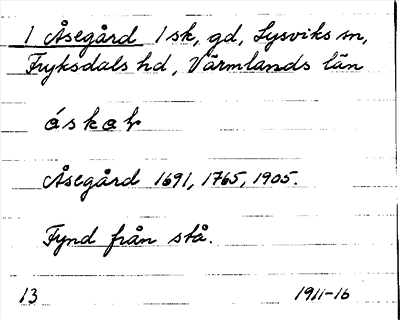 1 Åsegård 1 sk, gd, Lysviks sn,
Fryksdals hd, Värmlands län
Åsegård 1691, 1765, 1905.
Fynd från stå.
13 1911-16